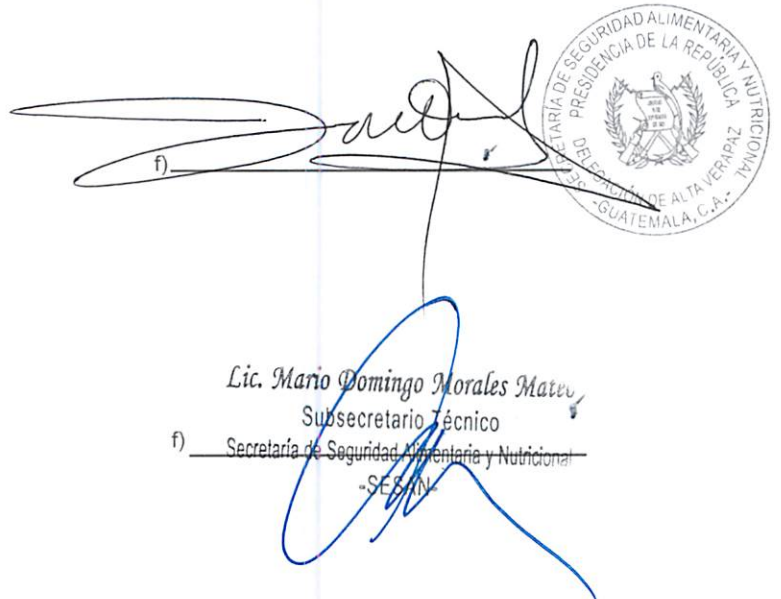 SECRETARÍA DE SEGURIDAD ALIMENTARIA Y NUTRICIONAL
PRESIDENCIA DE LA REPÚBLICA
DELEGACIÓN DE ALTA VERAPAZ
-GUATEMALA, C.A.-
f)
Lic. Mario Domingo Morales Mateo
Subsecretario Técnico
f) Secretaría de Seguridad Alimentaria y Nutricional
-SESAN-